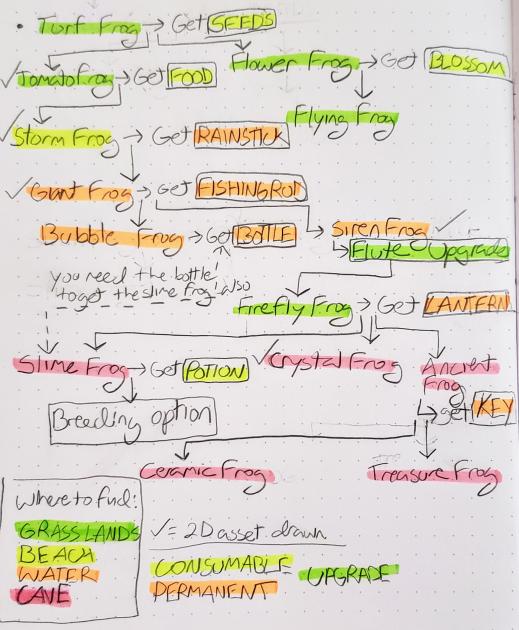 • Turf Frog → Get SEEDS
✓ Tomato Frog → Get FOOD
Flower Frog → Get BLOSSOM
Flying Frog
✓ Storm Frog → Get RAINSTICK
✓ Giant Frog → Get FISHING ROD
Bubble Frog → Get BOTTLE
Siren Frog ✓
Flute Upgrade
you need the bottle
to get the slime frog also
Firefly Frog → Get LANTERN
Slime Frog → Get POTION
✓ Crystal Frog
Ancient
Frog
get KEY
Breeding option
Ceramic Frog
Treasure Frog
Where to find:
GRASSLANDS
BEACH
WATER
CAVE
✓ = 2D asset drawn
CONSUMABLE UPGRADE
PERMANENT